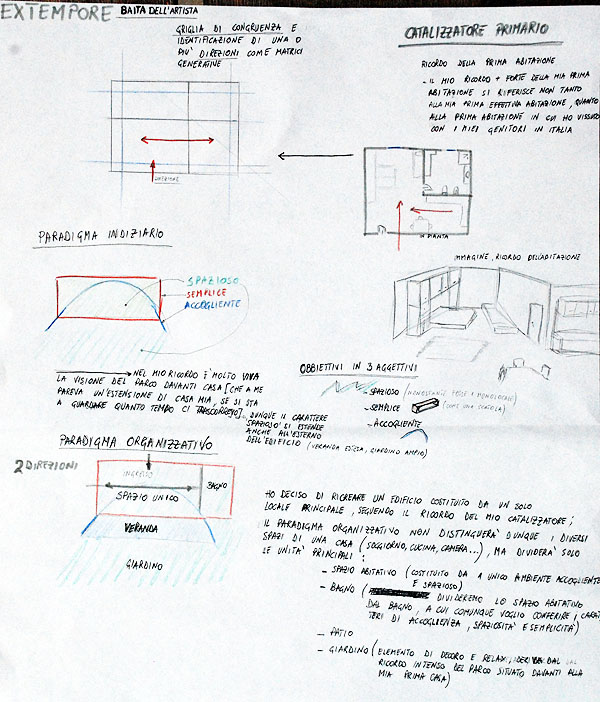 EXTEMPORE BAITA DELL'ARTISTA
GRIGLIA DI CONGRUENZA E
IDENTIFICAZIONE DI UNA O
PIU' DIREZIONI COME MATRICI
GENERATIVE
DIREZIONE
CATALIZZATORE PRIMARIO
RICORDO DELLA PRIMA ABITAZIONE
- IL MIO RICORDO + FORTE DELLA MIA PRIMA
ABITAZIONE SI RIFERISCE NON TANTO
ALLA MIA PRIMA EFFETTIVA ABITAZIONE, QUANTO
ALLA PRIMA ABITAZIONE IN CUI HO VISSUTO
CON I MIEI GENITORI IN ITALIA
IN PIANTA
IMMAGINE, RICORDO DELL'ABITAZIONE
PARADIGMA INDIZIARIO
SPAZIOSO
SEMPLICE
ACCOGLIENTE
NEL MIO RICORDO È MOLTO VIVA
LA VISIONE DEL PARCO DAVANTI CASA [CHE A ME
PAREVA UN'ESTENSIONE DI CASA MIA, SE SI STA
A GUARDARE QUANTO TEMPO CI TRASCORREVO]
DUNQUE IL CARATTERE
"SPAZIOSO" SI ESTENDE
ANCHE ALL'ESTERNO
DELL'EDIFICIO (VERANDA ESTESA, GIARDINO AMPIO)
OBBIETTIVI IN 3 AGGETTIVI
- SPAZIOSO (NONOSTANTE FOSSE 1 MONOLOCALE)
- SEMPLICE (COME UNA SCATOLA)
- ACCOGLIENTE
PARADIGMA ORGANIZZATIVO
2 DIREZIONI
INGRESSO
SPAZIO UNICO
BAGNO
VERANDA
GIARDINO
HO DECISO DI RICREARE UN EDIFICIO COSTITUITO DA UN SOLO
LOCALE PRINCIPALE, SEGUENDO IL RICORDO DEL MIO CATALIZZATORE;
IL PARADIGMA ORGANIZZATIVO NON DISTINGUERÀ DUNQUE I DIVERSI
SPAZI DI UNA CASA (SOGGIORNO, CUCINA, CAMERA...), MA DIVIDERÀ SOLO
LE UNITÀ PRINCIPALI:
- SPAZIO ABITATIVO (COSTITUITO DA 1 UNICO AMBIENTE ACCOGLIENTE
E SPAZIOSO)
- BAGNO ( DIVIDEREMO LO SPAZIO ABITATIVO
DAL BAGNO, A CUI COMUNQUE VOGLIO CONFERIRE I CARAT
TERI DI ACCOGLIENZA, SPAZIOSITÀ E SEMPLICITÀ)
- PATIO
- GIARDINO (ELEMENTO DI DECORO E RELAX, DAL
RICORDO INTENSO DEL PARCO SITUATO DAVANTI ALLA
MIA PRIMA CASA)